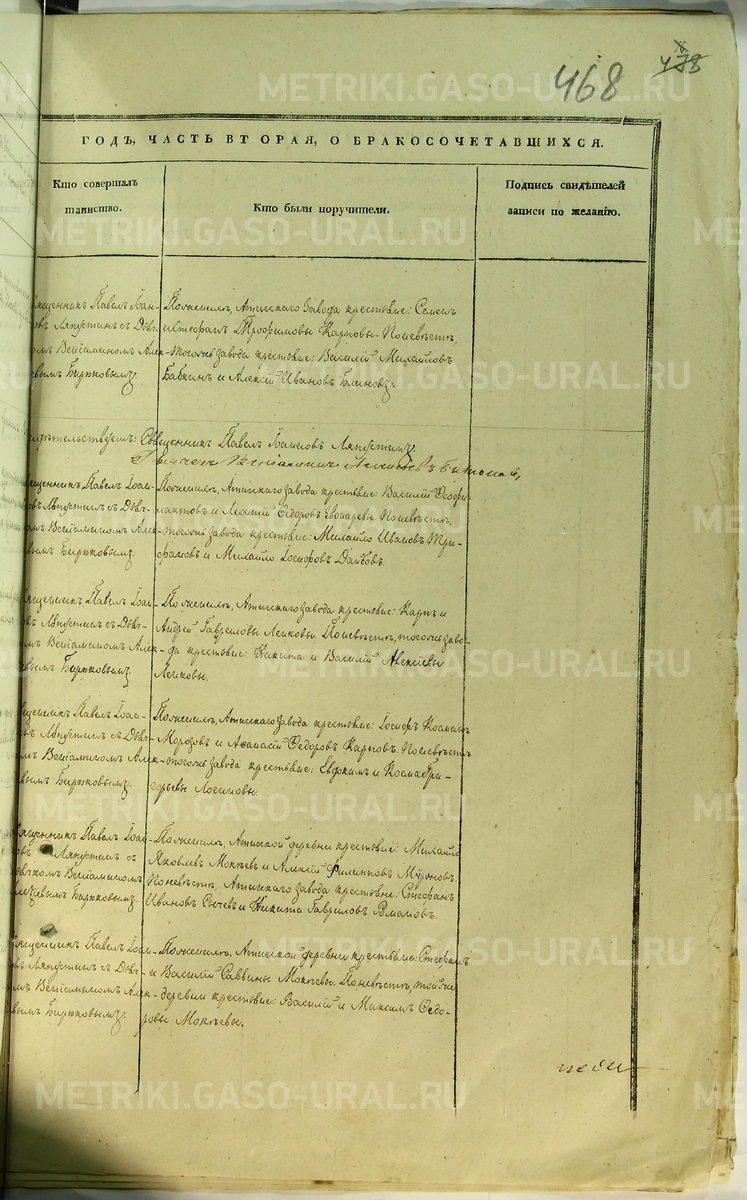 468
478
ГОДЪ, ЧАСТЬ ВТОРАЯ, О БРАКОСОЧЕТАВШИХСЯ.
Кто совершалъ
таинство.
Кто были поручители.
Подпись свидѣтелей
записи по желанію.
Священникъ Павелъ Іоан-
овъ Ляпустинъ съ Дьяч-
комъ Веніаминомъ Алек-
ѣевымъ Бирюковымъ.
По женихѣ, Атигскаго завода крестьяне: Семенъ
и Стефанъ Трофимовы Карповы. По невѣстѣ,
того же завода крестьяне: Василій Михайловъ
Бабкинъ и Алексій Ивановъ Блиновъ.
свидѣтельствуемъ: Священникъ Павелъ Іоанновъ Ляпустинъ
Дьячекъ Веніаминъ Алексѣевъ Бирюковъ
щенникъ Павелъ Іоан-
овъ Ляпустинъ съ Дьяч-
омъ Веніаминомъ Алек-
вымъ Бирюковымъ.
По женихѣ, Атигскаго завода крестьяне: Василій Ѳеофи-
лактовъ и Леонтій Ѳедоровъ По невѣстѣ,
того же завода крестьяне: Михайло Ивановъ Три-
фановъ и Михайло Іосифовъ
ященникъ Павелъ Іоан-
овъ Ляпустинъ съ Дьяч-
мъ Веніаминомъ Алек-
вымъ Бирюковымъ.
По женихѣ, Атигскаго завода крестьяне: Карпъ и
Андрей Гавриловы Лепковы. По невѣстѣ, того же заво-
да крестьяне: Никита и Василій Алексѣевы
Лепковы.
щенникъ Павелъ Іоан-
овъ Ляпустинъ съ Дьяч-
мъ Веніаминомъ Алек-
вымъ Бирюковымъ.
По женихѣ, Атигскаго завода крестьяне: Іосифъ Косминъ
Морозовъ и Аѳанасій Ѳедоровъ Карповъ. По невѣстѣ
того же завода крестьяне: Евфимъ и Косма Гри-
горьевы Логиновы.
ященникъ Павелъ Іоан-
овъ Ляпустинъ съ
ьячкомъ Веніаминомъ
лексѣевымъ Бирюковымъ.
По женихѣ, Атигской деревни крестьяне: Михайло
Яковлевъ Мокѣевъ и Алексій Филипповъ
По невѣстѣ, Атигскаго завода крестьяне: Стефанъ
Ивановъ Сычевъ и Никита Гавриловъ Романовъ.
ященникъ Павелъ Іоан-
овъ Ляпустинъ съ Дьяч-
мъ Веніаминомъ Алек-
вымъ Бирюковымъ.
По женихѣ, Атигской деревни крестьяне: Стефанъ
и Василій Саввины Мокѣевы. По невѣстѣ, той же
деревни крестьяне: Василій и Максимъ Ѳедо-
ровы Мокѣевы.
METRIKI.GASO-URAL.RU